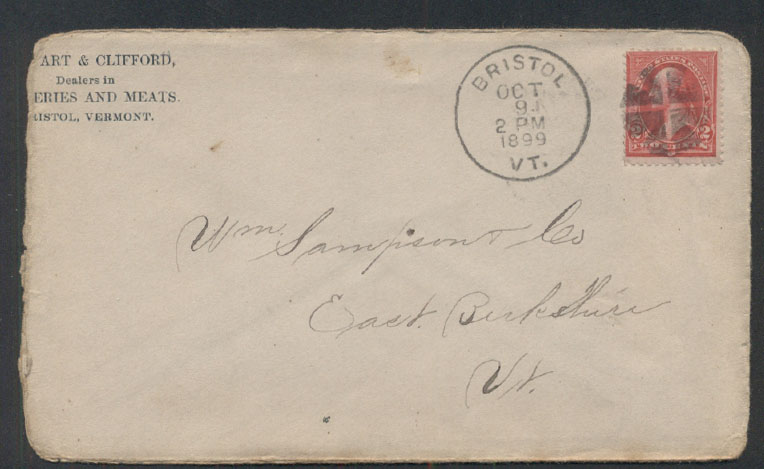 ART & CLIFFORD,
Dealers in
ERIES AND MEATS.
RISTOL, VERMONT.
BRISTOL
OCT
9
2 PM
1899
VT.
2 2
Wm Sampson & Co
East Berkshire
Vt.